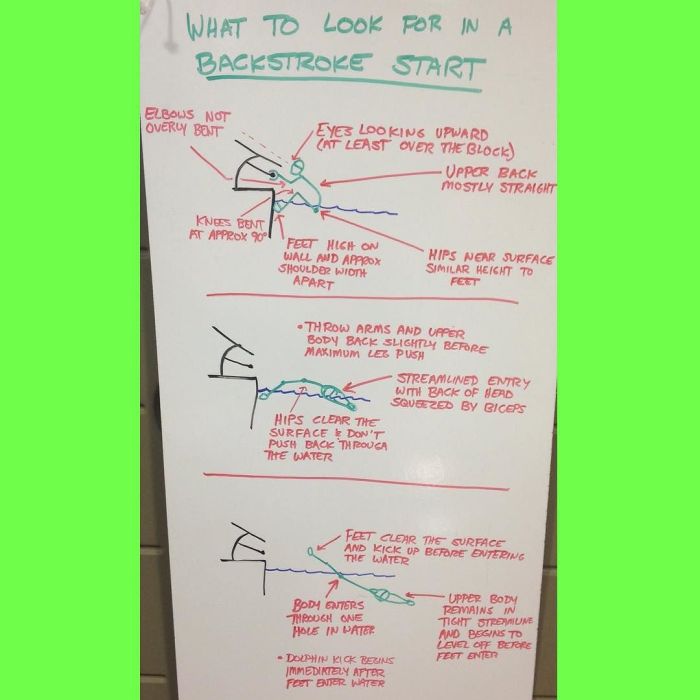 WHAT TO LOOK FOR IN A
BACKSTROKE START
ELBOWS NOT
OVERLY BENT
EYES LOOKING UPWARD
(AT LEAST OVER THE BLOCK)
UPPER BACK
MOSTLY STRAIGHT
KNEES BENT
AT APPROX 90°
FEET HIGH ON
WALL AND APPROX
SHOULDER WIDTH
APART
HIPS NEAR SURFACE
SIMILAR HEIGHT TO
FEET
• THROW ARMS AND UPPER
BODY BACK SLIGHTLY BEFORE
MAXIMUM LEG PUSH
STREAMLINED ENTRY
WITH BACK OF HEAD
SQUEEZED BY BICEPS
HIPS CLEAR THE
SURFACE & DON'T
PUSH BACK THROUGH
THE WATER
FEET CLEAR THE SURFACE
AND KICK UP BEFORE ENTERING
THE WATER
BODY ENTERS
THROUGH ONE
HOLE IN WATER
UPPER BODY
REMAINS IN
TIGHT STREAMLINE
AND BEGINS TO
LEVEL OFF BEFORE
FEET ENTER
• DOLPHIN KICK BEGINS
IMMEDIATELY AFTER
FEET ENTER WATER